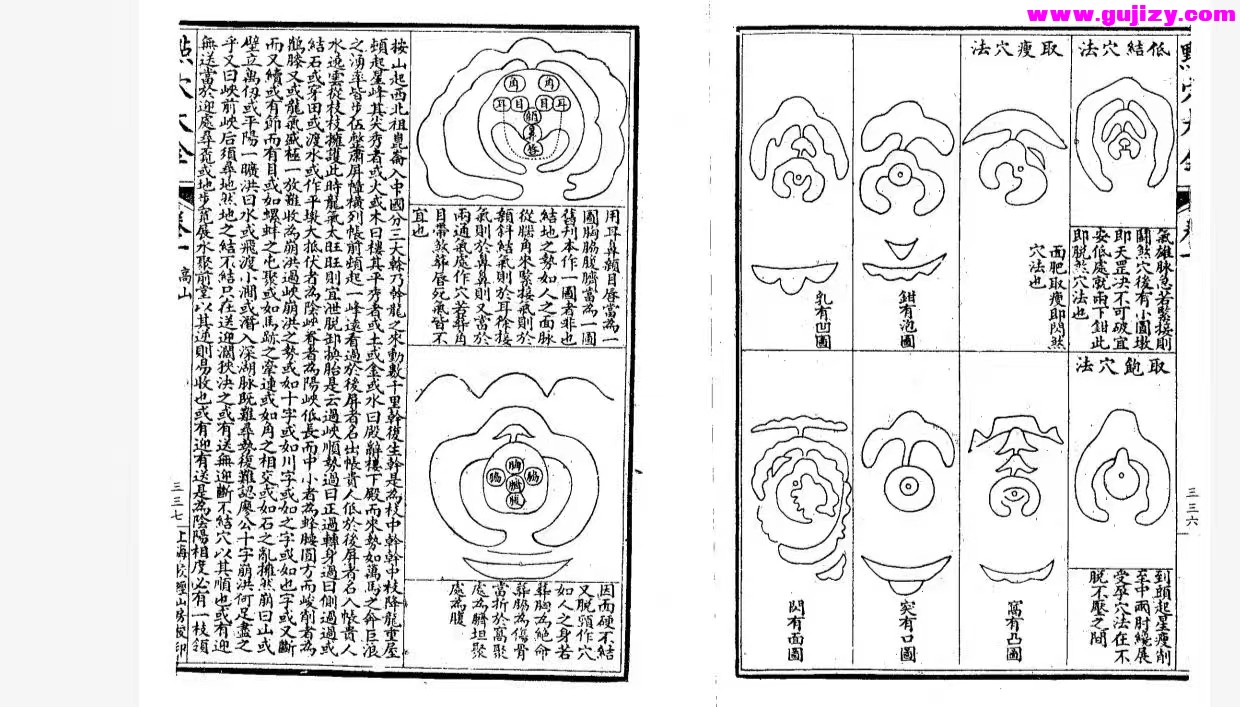 www.gujizy.com
低結穴法
氣雄脉急若緊接則
鬬煞穴後有小圓墩
即天罡決不可破宜
安低處就兩下鉗此
即脫煞穴法也
取飽穴法
到頭起星瘦削
至中兩肘纔展
受孕穴法在不
脫不壓之間
三三六
取瘦穴法
面肥取瘦即閃煞
穴法也
窩有凸圖
鉗有泡圖
突有口圖
乳有凹圖
悶有面圖
角
角
耳
目
目
耳
顙
鼻
唇
用耳鼻顙目唇當為一
圖胸脇腹臍當為一圖
舊刋本作一圖者非也
結地之勢如人之面脉
從腦角來緊接氣則於
顙斜結氣則於耳徐接
氣則於鼻鼻則又當於
兩通氣處作穴若葬角
目帶煞葬唇死氣皆不
宜也
胸
脇
脇
臍
腹
因面硬不結
又脫頸作穴
如人之身若
葬胸為絶命
葬脇為傷骨
當折於窩聚
處為臍坦聚
處為腹
按山起西北祖崑崙入中國分三大幹乃幹龍之來動數千里幹復生幹是為枝中幹幹中枝降龍重屋
頓起星峰其尖秀者或火或木曰樓其平秀者或土或金或水曰殿辭樓下殿而來勢如萬馬之奔巨浪
之湧率皆步伍嚴肅屏幛橫列帳前頓起一峰遠看過於後屏者名出帳貴人低於後屏者名入帳貴人
水遶雲從枝枝擁護此時龍氣太旺旺則宜泄脫卸換胎是云過峽順勢過曰正過轉身過曰側過過或
結石或穿田或渡水或作平墩大抵伏者為陰峽脊者為陽峽低長而中小者為蜂腰圓方而峻削者為
鸖膝又或龍氣盛極一放難收為崩洪過峽崩洪之勢或如十字或如川字或如之字或如也字或又斷
而又續或有節而有目或如螺蚌之屯聚或如馬跡之牽連或如角之相交或如石之亂擁然崩曰山或
壁立萬仭或平陽一曠洪曰水或飛渡小澗或潛入深湖脉既難尋勢復難認廖公十字崩洪何足盡之
乎又曰峽前峽后須尋地然地之結不結只在送迎濶狹決之或有送無迎斷不結穴以其順也或有迎
無送當於迎處尋覔或地步寬展水聚前堂以其逆則易收也或有迎有送是為陰陽相度必有一枝領
卷一
高山
三三七
上海
山房校印